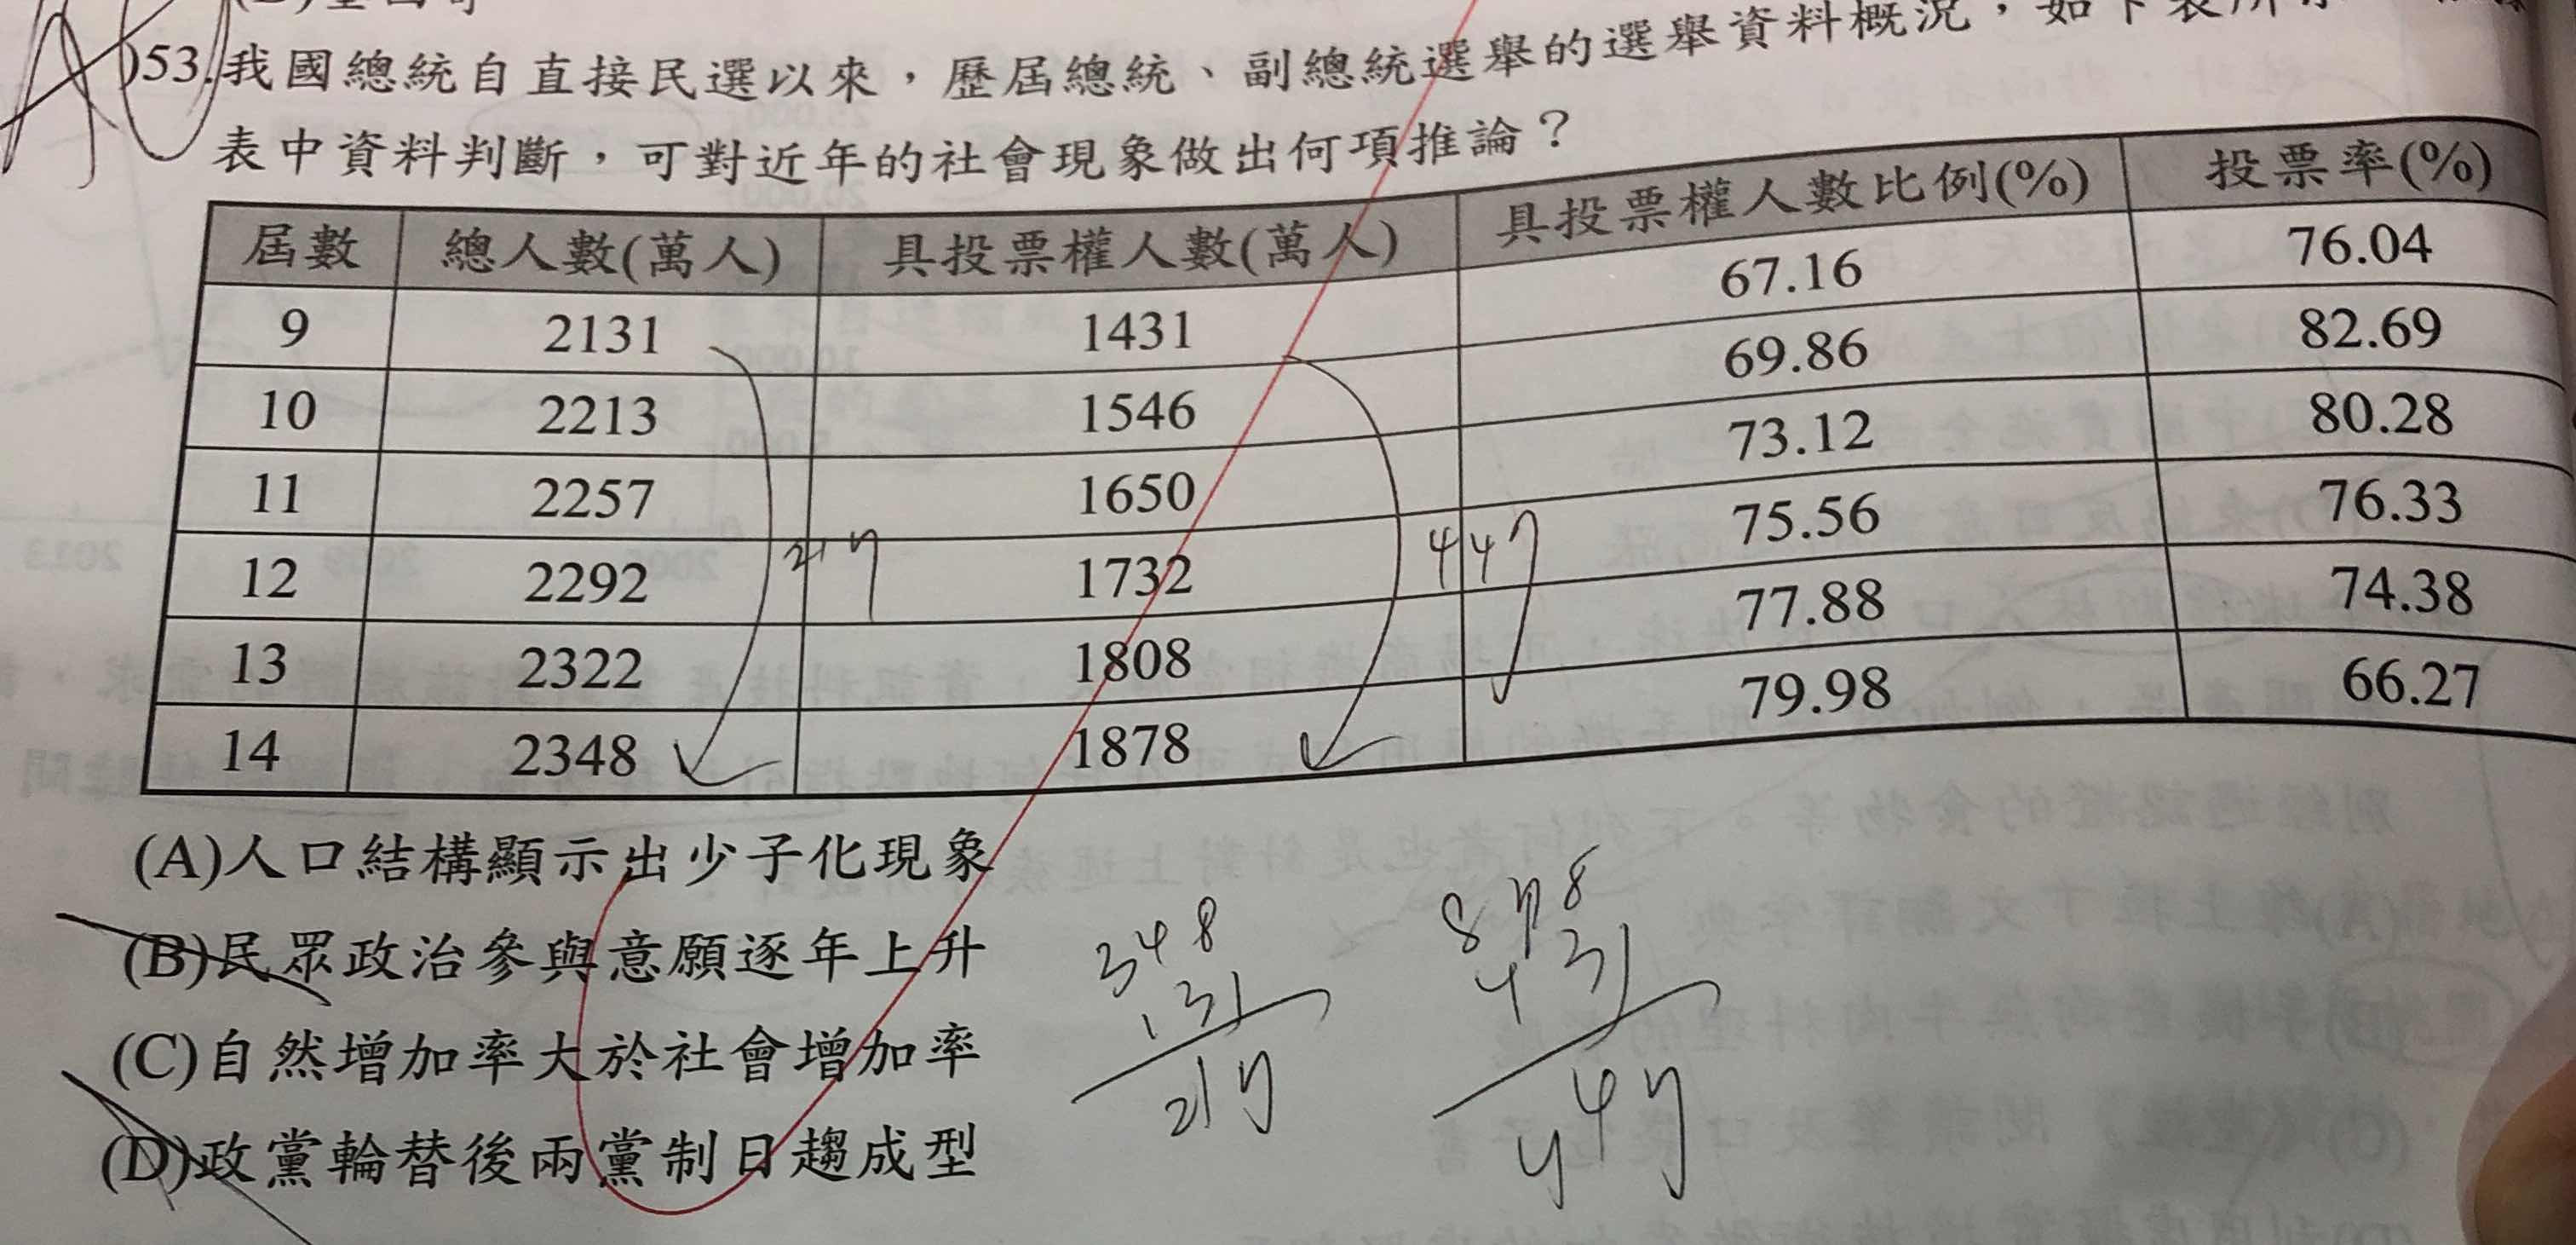 53.我國總統自直接民選以來，歷屆總統、副總統選舉的選舉資料概況，如下表所示
表中資料判斷，可對近年的社會現象做出何項推論？
屆數 總人數(萬人) 具投票權人數(萬人) 具投票權人數比例(%) 投票率(%)
9 2131 1431 67.16 76.04
10 2213 1546 69.86 82.69
11 2257 1650 73.12 80.28
12 2292 1732 75.56 76.33
13 2322 1808 77.88 74.38
14 2348 1878 79.98 66.27
217
447
(A)人口結構顯示出少子化現象
(B)民眾政治參與意願逐年上升
(C)自然增加率大於社會增加率
(D)政黨輪替後兩黨制日趨成型
348
131
217
878
431
447